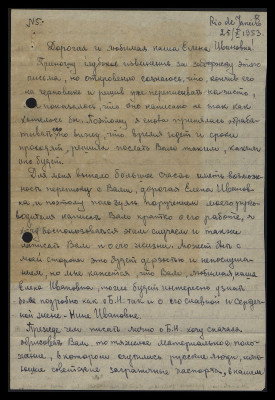 N5.
Rio de Janeiro
25/X 1953.
Дорогая и любимая наша Елена Ивановна!
Приношу глубокие извинения за задержку этого
письма, но откровенно сознаюсь, что, кончив его
на здоровом и решив уже переписывать начисто,
мне показалось, что оно написано не так как
хотелось бы. Поэтому, я снова принялась обраба-
тывать его видя, что время идет и сроки
проходят, решила послать Вам таким, каким
оно будет.
Для меня выпало большое счастье иметь возмож-
ность переписки с Вами, дорогая Елена Иванов-
на, и поэтому, пользуясь поручением моего руко-
водителя написать Вам кратко о его работе, я
воспользоваться этим случаем и также
написать Вам о его жизни. Может быть с
моей стороны это будет дерзостью и непослуша-
нием, но мне кажется, что Вам, любимая наша
Елена Ивановна, тоже будет интересно узнать
более подробно как о Б.Н. так и о его славной и сердеч-
ной жене - Нине Ивановне.
Прежде чем писать лично о Б.Н. хочу сначала
обрисовать Вам то тяжелое материальное поло-
жение, в котором очутились русские люди, имею-
ющие советские заграничные паспорта, в нашем